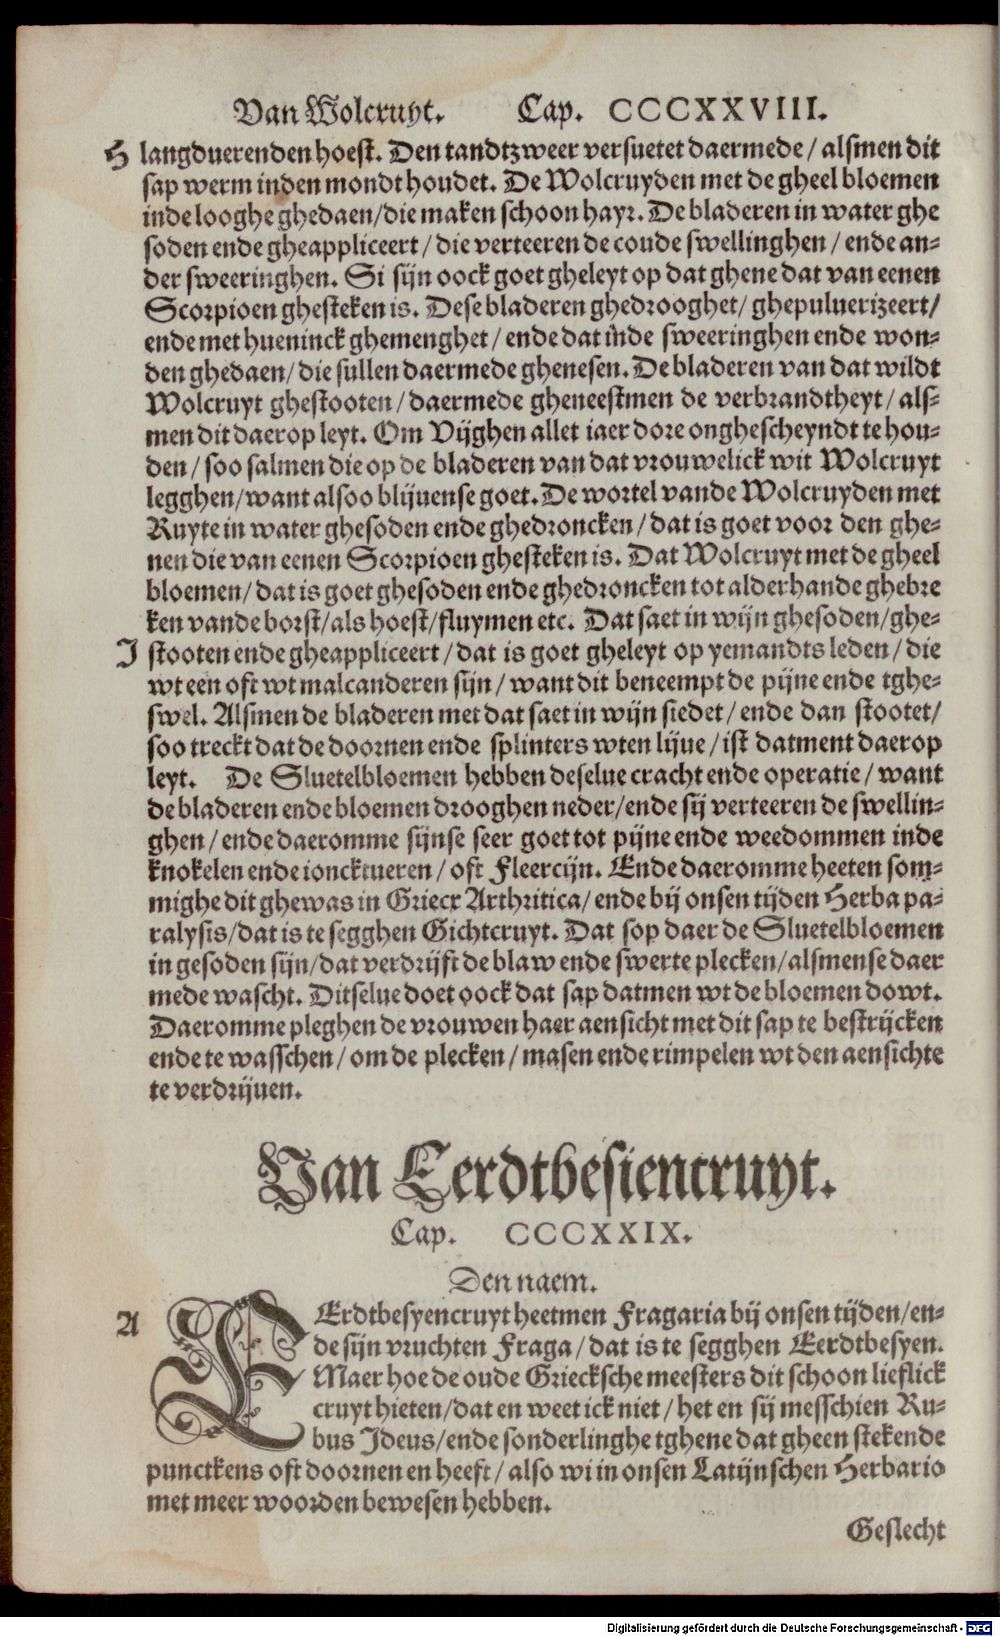 Van Wolcruyt. Cap. CCCXXVIII.
H langduerenden hoest. Den tandtzweer versuetet daermede / alsmen dit
sap werm inden mondt houdet. De Wolcruyden met de gheel bloemen
inde looghe ghedaen/die maken schoon hayr. De bladeren in water ghe
soden ende gheappliceert / die verteeren de coude swellinghen / ende an-
der sweeringhen. Si sijn oock goet gheleyt op dat ghene dat van eenen
Scorpioen ghesteken is. Dese bladeren ghedrooghet/ ghepuluerizeert/
ende met hueninck ghemenghet / ende dat inde sweeringhen ende won-
den ghedaen/ die sullen daermede ghenesen. De bladeren van dat wildt
Wolcruyt ghestooten / daermede gheneestmen de verbrandtheyt / als-
men dit daer op leyt. Om Vijghen allet iaer dore onghescheyndt te hou-
den / soo salmen die op de bladeren van dat vrouwelick wit Wolcruyt
legghen/want alsoo blijuense goet. De wortel vande Wolcruyden met
Ruyte in water ghesoden ende ghedroncken / dat is goet voor den ghe-
nen die van eenen Scorpioen ghesteken is. Dat Wolcruyt met de gheel
bloemen / dat is goet ghesoden ende ghedroncken tot alderhande ghebre
ken vande borst/als hoest/fluymen etc. Dat saet in wijn ghesoden/ghe-
I stooten ende gheappliceert / dat is goet gheleyt op yemandts leden / die
wt een oft wt malcanderen sijn / want dit beneempt de pijne ende tghe-
swel. Alsmen de bladeren met dat saet in wijn siedet / ende dan stootet/
soo treckt dat de doornen ende splinters wten lijue / ist datment daer op
leyt. De Sluetelbloemen hebben deselue cracht ende operatie / want
de bladeren ende bloemen drooghen neder/ende sij verteeren de swellin-
ghen / ende daeromme sijnse seer goet tot pijne ende weedommen inde
knokelen ende ioncktueren / oft Fleercijn. Ende daeromme heeten som-
mighe dit ghewas in Griecx Arthritica/ ende bij onsen tijden Herba pa-
ralysis/dat is te segghen Gichtcruyt. Dat sop daer de Sluetelbloemen
in gesoden sijn/dat verdrijft de blaw ende swerte plecken/alsmense daer
mede wascht. Ditselue doet oock dat sap datmen wt de bloemen dowt.
Daeromme pleghen de vrouwen haer aensicht met dit sap te bestrijcken
ende te wasschen / om de plecken / masen ende rimpelen wt den aensichte
te verdrijuen.
Van Eerdtbesiencruyt.
Cap. CCCXXIX.
Den naem.
A EErdtbesyencruyt heetmen Fragaria bij onsen tijden/en-
de sijn vruchten Fraga / dat is te segghen Eerdtbesyen.
Maer hoe de oude Griecksche meesters dit schoon lieflick
cruyt hieten/dat en weet ick niet / het en sij messchien Ru-
bus Ideus/ende sonderlinghe tghene dat gheen stekende
punctkens oft doornen en heeft / also wi in onsen Latijnschen Herbario
met meer woorden bewesen hebben.
Geslecht
Digitalisierung gefördert durch die Deutsche Forschungsgemeinschaft - DFG